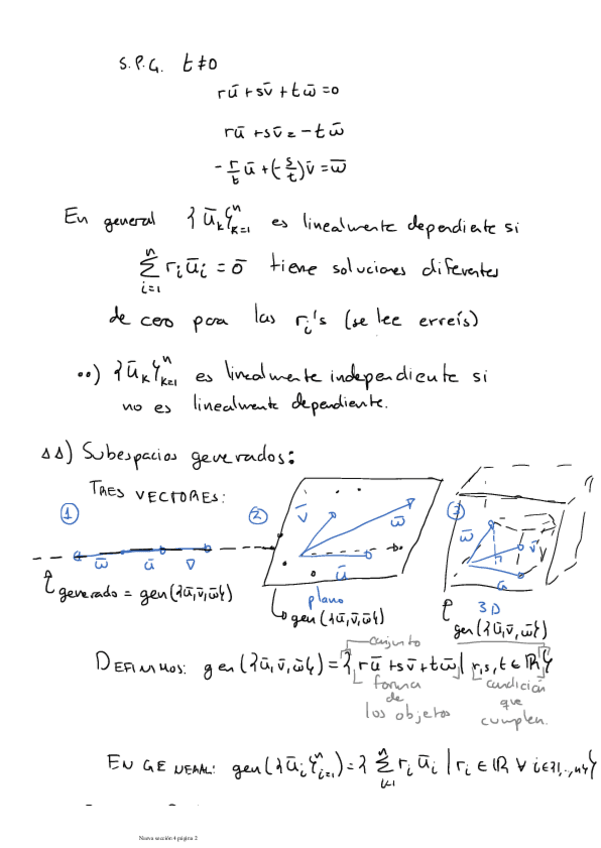 S.P.G. t≠0
rū + sv̄ + tω̄ = 0
rū + sv̄ = -tω̄
-r/t ū + (-s/t) v̄ = ω̄
En general {ū_k}ⁿ_{k=1} es linealmente dependiente si
Σ_{i=1}^n r_i ū_i = ō tiene soluciones diferentes
de cero para las r_i's (se lee erreís)
••) {ū_k}ⁿ_{k=1} es linealmente independiente si
no es linealmente dependiente.
ΔΔ) Subespacios generados:
TRES VECTORES:
1
2
3
ω̄ ū v̄
v̄ ω̄ ū
ω̄ v̄ ū
generado = gen({ū,v̄,ω̄})
plano
gen({ū,v̄,ω̄})
3D
gen({ū,v̄,ω̄})
conjunto
DEFINIMOS: gen({ū,v̄,ω̄}) = {rū + sv̄ + tω̄ | r,s,t ∈ ℝ}
forma de los objetos
condición que cumplen.
EN GENERAL: gen({ū_i}ⁿ_{i=1}) = {Σ_{i=1}^n r_i ū_i | r_i ∈ ℝ ∀ i∈{1,..,n}}
Nueva sección 4 página 2